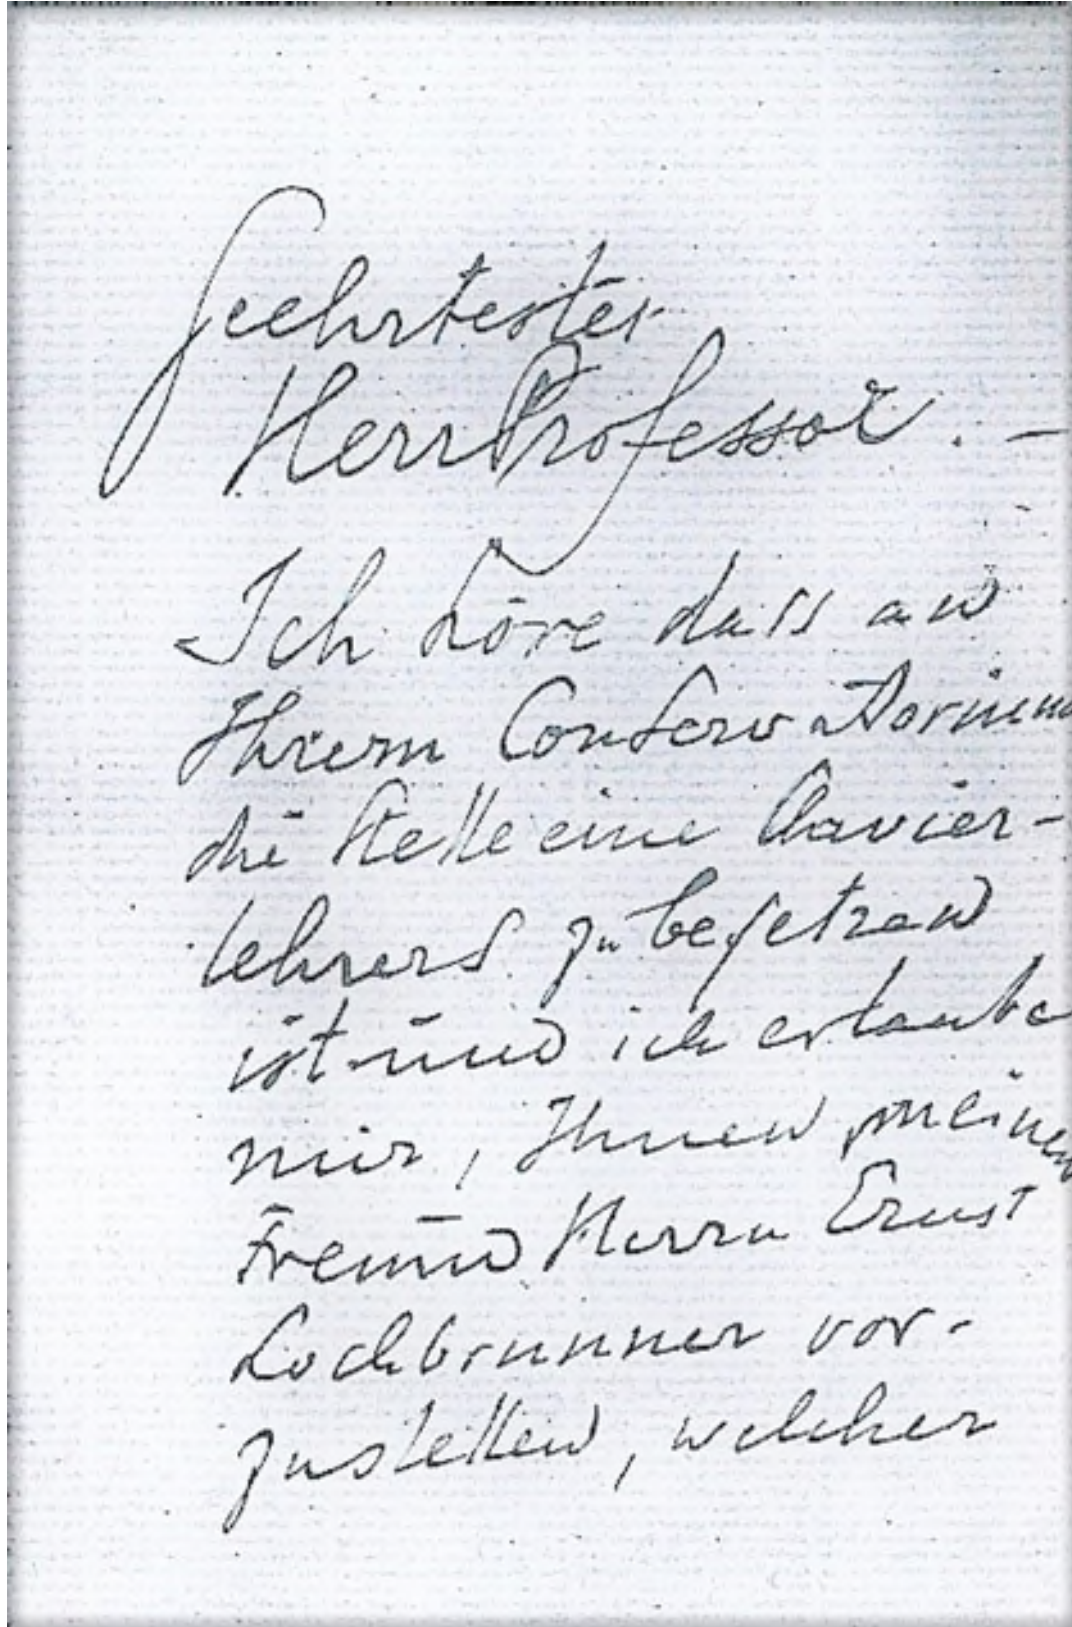 Geehrtester
Herr Professor. –
Ich höre dass an
Ihrem Conservatorium
die Stelle eine Clavier-
lehrers zu besetzen
ist und ich erlaube
mir, Ihnen meinen
Freund Herrn Ernst
Lochbrunner vor-
zustellen, welcher